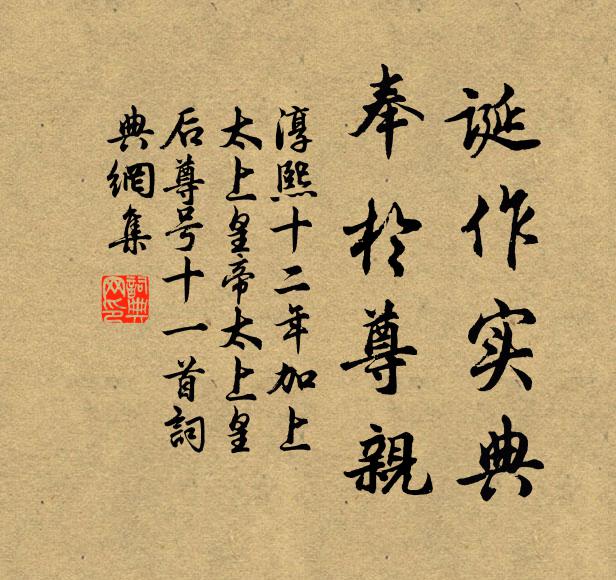 诞作实典
奉於尊親
淳熙十二年加上
太上皇帝太上皇
后尊号十一首詞
典網集
詞典
网印